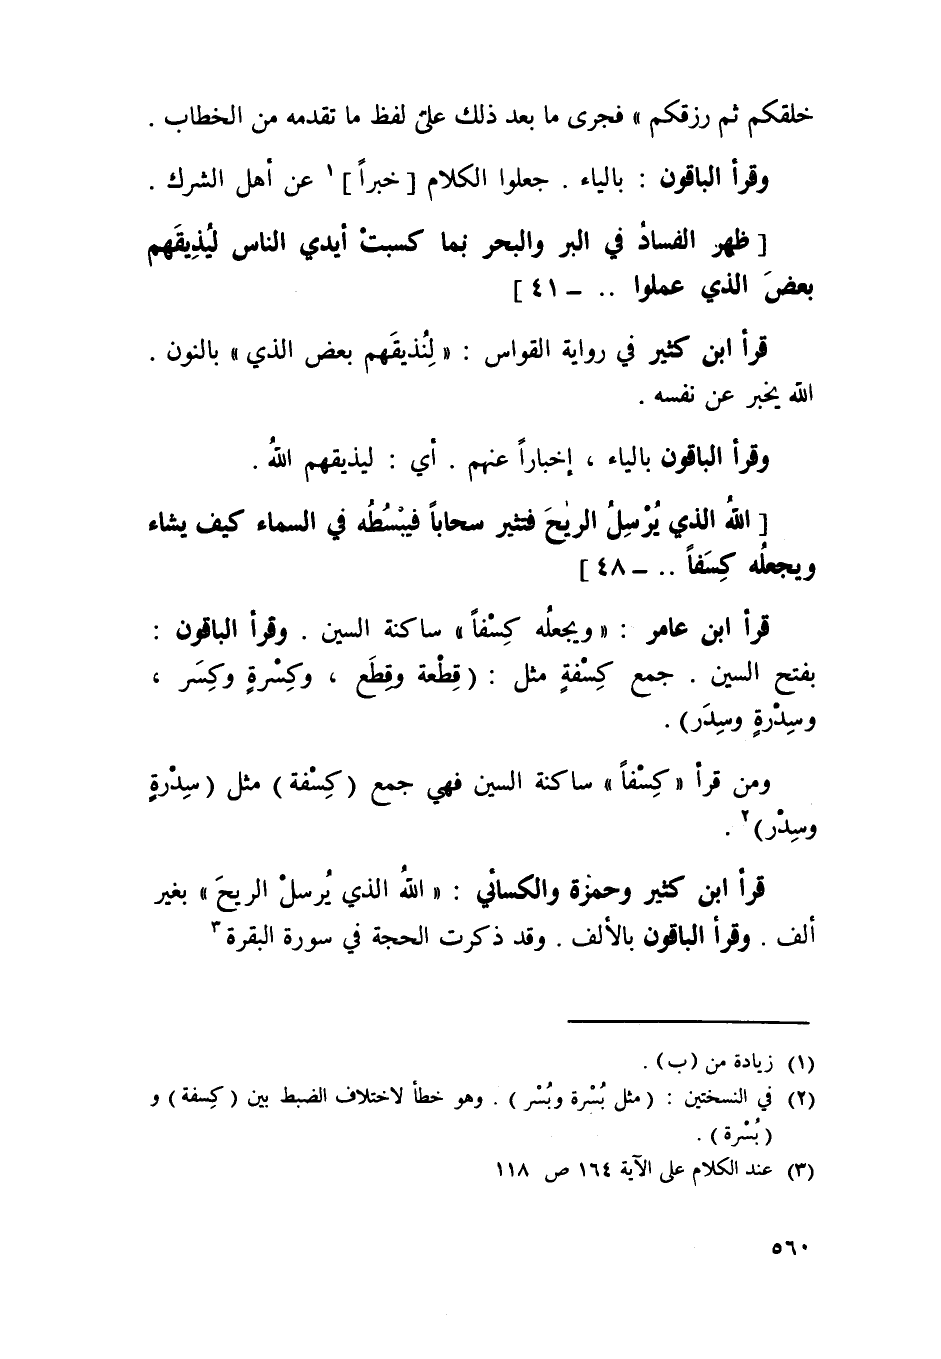 خلقكم ثم رزقكم » فجرى ما بعد ذلك على لفظ ما تقدمه من الخطاب .
وقرأ الباقون : بالياء . جعلوا الكلام [ خبراً ]١ عن أهل الشرك .
[ ظهر الفسادُ في البر والبحر بما كسبتْ أيدي الناس ليُذِيقَهم
بعضَ الذي عملوا .. – ٤١ ]
قرأ ابن كثير في رواية القواس : « لِنُذيقَهم بعض الذي » بالنون .
الله يخبر عن نفسه .
وقرأ الباقون بالياء ، إخباراً عنهم . أي : ليذيقهم اللهُ .
[ اللهُ الذي يُرْسِلُ الريٰحَ فتثير سحاباً فيبْسُطُه في السماء كيف يشاء
ويجعلُه كِسَفاً .. – ٤٨ ]
قرأ ابن عامر : « ويجعلُه كِسْفاً » ساكنة السين . وقرأ الباقون :
بفتح السين . جمع كِسْفةٍ مثل : ( قِطْعة وقِطَع ، وكِسْرةٍ وكِسَر ،
وسِدْرةٍ وسِدَر ) .
ومن قرأ « كِسْفاً » ساكنة السين فهي جمع ( كِسْفة ) مثل ( سِدْرةٍ
وسِدْر )٢ .
قرأ ابن كثير وحمزة والكسائي : « اللهُ الذي يُرسلْ الريحَ » بغير
ألف . وقرأ الباقون بالألف . وقد ذكرت الحجة في سورة البقرة٣
(١) زيادة من (ب) .
(٢) في النسختين : ( مثل بُسْرة وبُسْر ) . وهو خطأ لاختلاف الضبط بين ( كِسفة ) و
( بُسْرة ) .
(٣) عند الكلام على الآية ١٦٤ ص ١١٨
٥٦٠